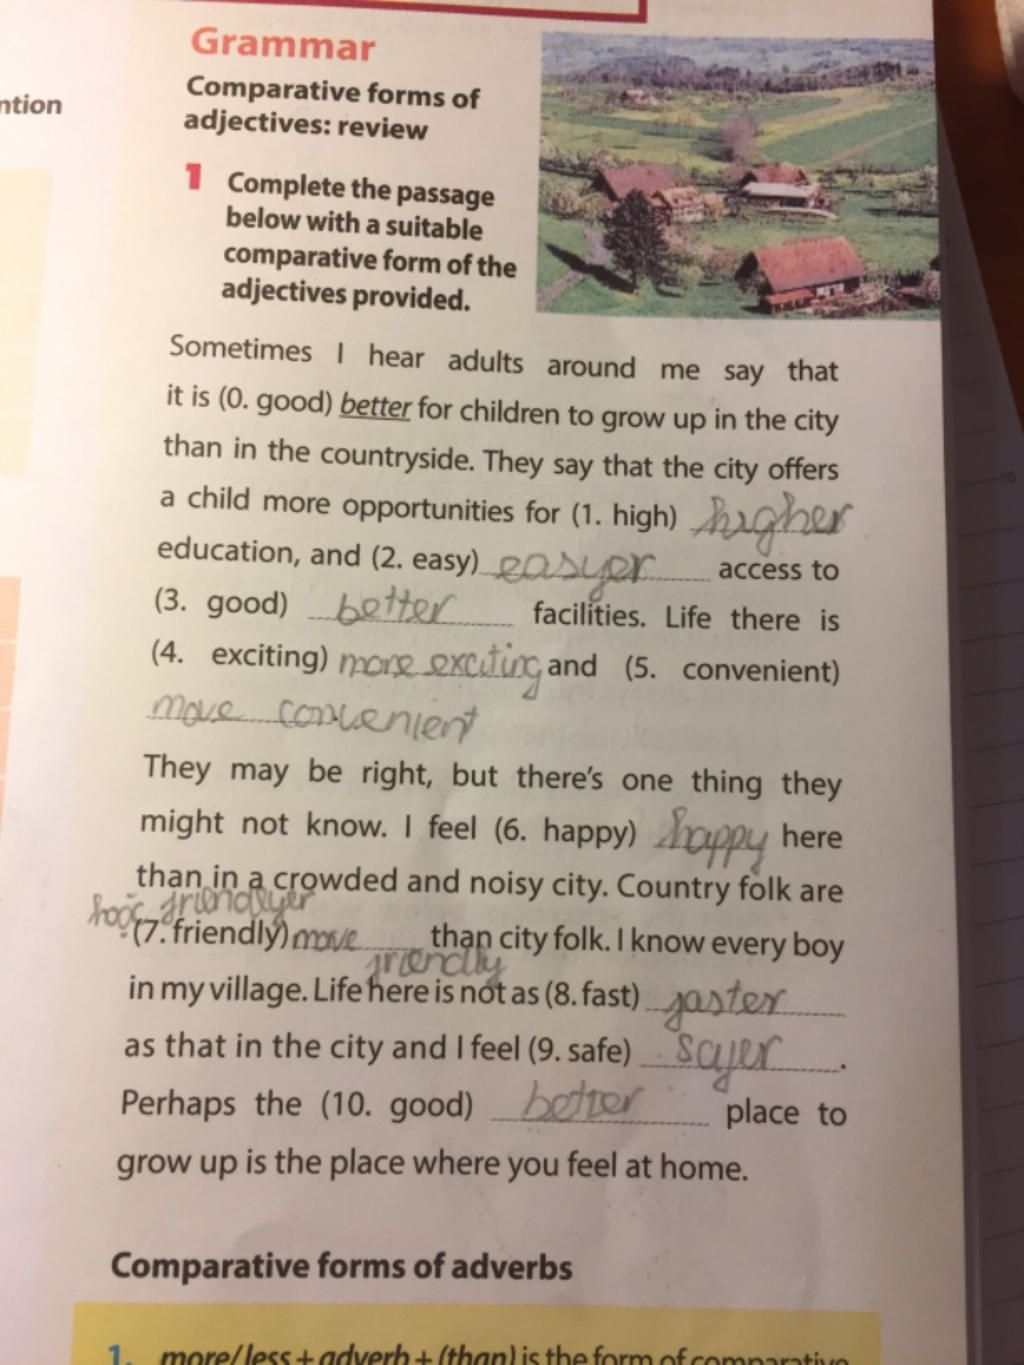 ntion
Grammar
Comparative forms of
adjectives: review
1 Complete the passage
below with a suitable
comparative form of the
adjectives provided.
Sometimes I hear adults around me say that
it is (0. good) better for children to grow up in the city
than in the countryside. They say that the city offers
a child more opportunities for (1. high) higher
education, and (2. easy) easyer access to
(3. good) better facilities. Life there is
(4. exciting) more exciting and (5. convenient)
more convenient
They may be right, but there's one thing they
might not know. I feel (6. happy) happy here
than in a crowded and noisy city. Country folk are
hoặc friendlyer
(7. friendly) more friendly than city folk. I know every boy
in my village. Life here is not as (8. fast) faster
as that in the city and I feel (9. safe) safer.
Perhaps the (10. good) better place to
grow up is the place where you feel at home.
Comparative forms of adverbs
1. more/less + adverb + (than) is the form of comparative
10